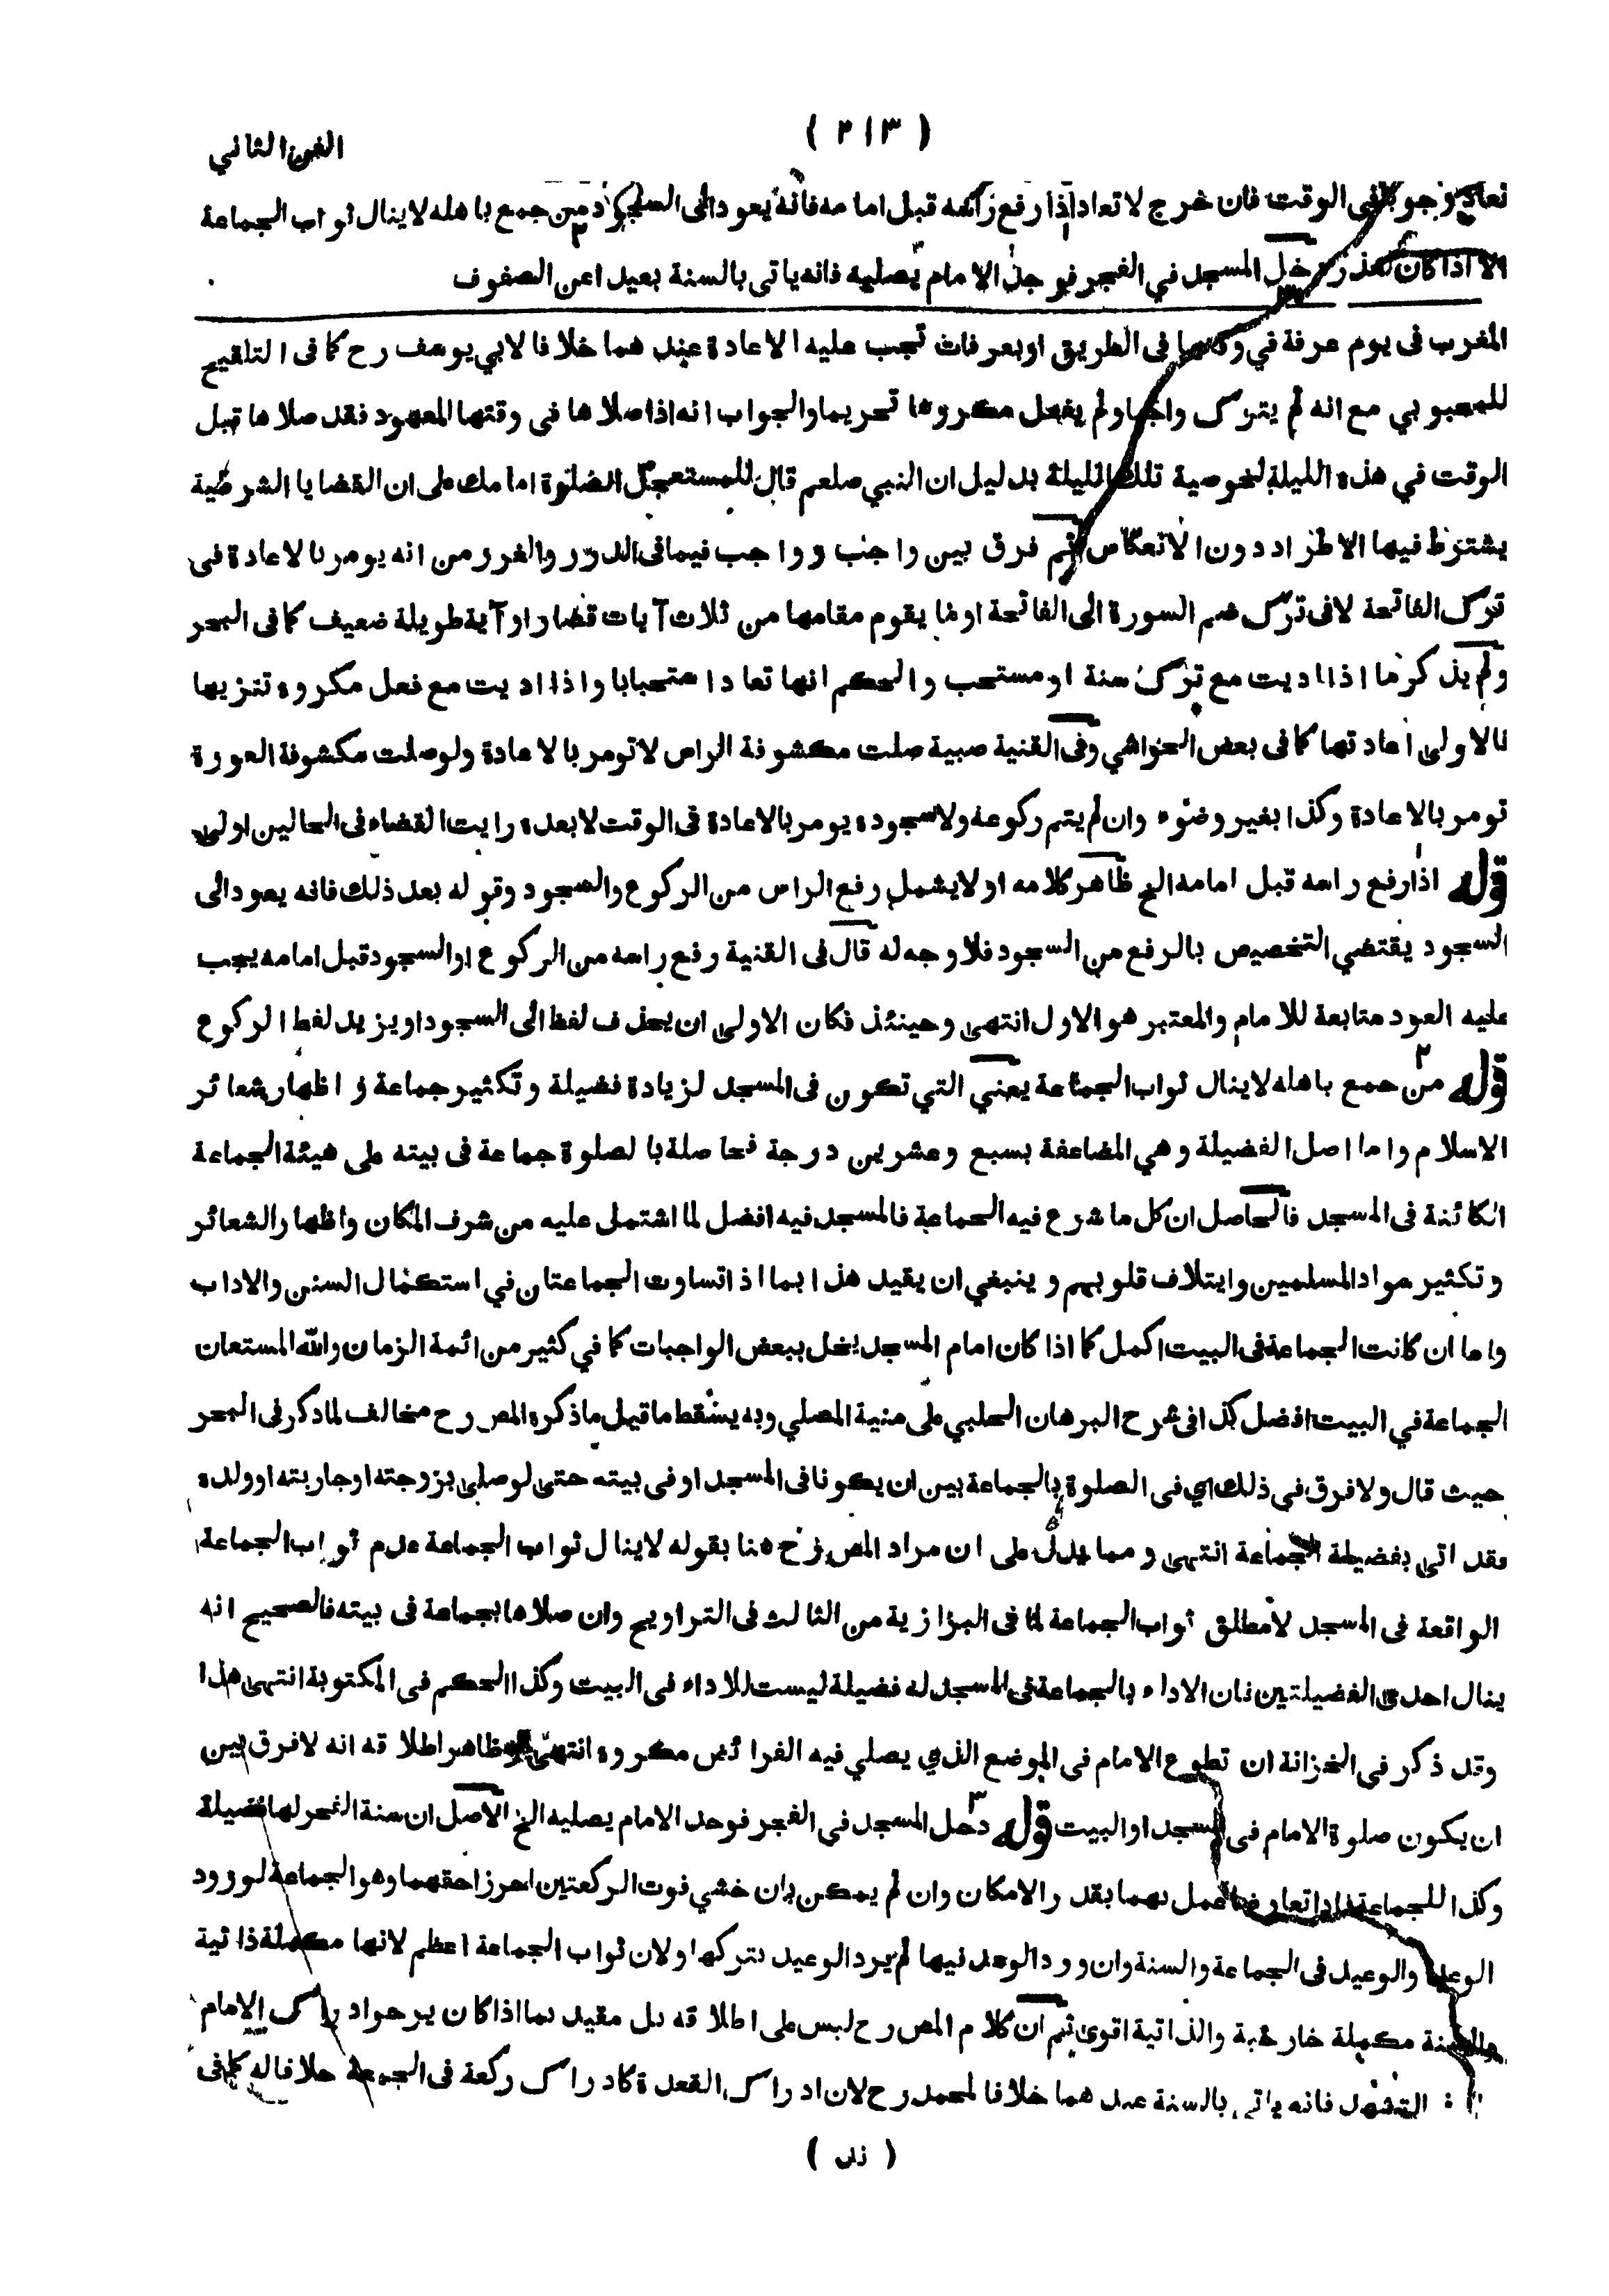 ( ٢١٣ )
الفن الثاني
تعاد وجوبا في الوقت فان خرج لا تعاد اذا رفع راسه قبل امامه فانه يعود الى السجود من جمع باهله لا ينال ثواب الجماعة
الا اذا كان لعذر دخل المسجد في الفجر فوجد الامام يصليه فانه ياتى بالسنة بعيدا عن الصفوف
المغرب فى يوم عرفة في وقتها فى الطريق او بعرفات تجب عليه الاعادة عند هما خلافا لابي يوسف رح كما فى التلقيح
للمحبوبي مع انه لم يترك واجبا ولم يفعل مكروها تحريما والجواب انه اذا صلاها فى وقتها المعهود فقد صلاها قبل
الوقت في هذه الليلة لخوصية تلك الليلة بدليل ان النبي صلعم قال للمستعجل الصلوة امامك على ان القضايا الشرطية
يشترط فيها الاطراد دون الانعكاس ثم فرق بين واجب وواجب فيما فى الدرر والغرر من انه يومر بالاعادة فى
ترك الفاتحة لا فى ترك ضم السورة الى الفاتحة او ما يقوم مقامها من ثلاث آيات قصار او آية طويلة ضعيف كما فى البحر
ولم يذكر ما اذا اديت مع ترك سنة او مستحب والحكم انها تعاد استحبابا واذا اديت مع فعل مكروه تنزيها
فالاولى اعادتها كما فى بعض الحواشي وفى القنية صبية صلت مكشوفة الراس لا تومر بالاعادة ولو صلت مكشوفة العورة
تومر بالاعادة وكذا بغير وضوء وان لم يتم ركوعه ولا سجوده يومر بالاعادة فى الوقت لا بعده رايت القضاء فى الحالين اولى
قوله اذا رفع راسه قبل امامه الخ ظاهر كلامه اولا يشمل رفع الراس من الركوع والسجود وقوله بعد ذلك فانه يعود الى
السجود يقتضي التخصيص بالرفع من السجود فلا وجه له قال فى القنية رفع راسه من الركوع او السجود قبل امامه يجب
عليه العود متابعة للامام والمعتبر هو الاول انتهى وحينئذ فكان الاولى ان يحذف لفظ الى السجود او يزيد لفظ الركوع
قوله ٢ من جمع باهله لا ينال ثواب الجماعة يعني التي تكون فى المسجد لزيادة فضيلة وتكثير جماعة و اظهار شعائر
الاسلام واما اصل الفضيلة وهي المضاعفة بسبع وعشرين درجة فحاصلة بالصلوة جماعة فى بيته على هيئة الجماعة
الكائنة فى المسجد فالحاصل ان كل ما شرع فيه الجماعة فالمسجد فيه افضل لما اشتمل عليه من شرف المكان واظهار الشعائر
وتكثير سواد المسلمين وايتلاف قلوبهم وينبغي ان يقيد هذا بما اذا تساوت الجماعتان في استكمال السنن والاداب
واما ان كانت الجماعة فى البيت اكمل كما اذا كان امام المسجد يخل ببعض الواجبات كما في كثير من ائمة الزمان والله المستعان
الجماعة في البيت افضل كذا فى شرح البرهان الحلبي على منية المصلي وبه يسقط ما قيل ما ذكره المص رح مخالف لما ذكر فى البحر
حيث قال ولا فرق في ذلك اي فى الصلوة بالجماعة بين ان يكونا فى المسجد او فى بيته حتى لو صلى بزوجته او جاريته او ولده
فقد اتى بفضيلة الجماعة انتهى و مما يدل على ان مراد المص رح هنا بقوله لا ينال ثواب الجماعة عدم ثواب الجماعة
الواقعة فى المسجد لا مطلق ثواب الجماعة لما فى البزازية من الثالث فى التراويح وان صلاها بجماعة فى بيته فالصحيح انه
ينال احدى الفضيلتين فان الاداء بالجماعة فى المسجد له فضيلة ليست للاداء فى البيت وكذا الحكم فى المكتوبة انتهى هذا
وقد ذكر فى الخزانة ان تطوع الامام فى الموضع الذي يصلي فيه الفرائض مكروه انتهى وظاهر اطلاقه انه لا فرق بين
ان يكون صلوة الامام فى المسجد او البيت قوله ٣ دخل المسجد فى الفجر فوجد الامام يصليه الخ الاصل ان سنة الفجر لها فضيلة
وكذا للجماعة فاذا تعارضا عمل بهما بقدر الامكان وان لم يمكن بان خشي فوت الركعتين احرز احقهما وهو الجماعة لورود
الوعد والوعيد فى الجماعة والسنة وان ورد الوعد فيها لم يرد الوعيد بتركها ولان ثواب الجماعة اعظم لانها مكملة ذاتية
والسنة مكملة خارجية والذاتية اقوى ثم ان كلام المص رح ليس على اطلاقه بل مقيد بما اذا كان يرجو ادراك الامام
التشهد فانه ياتى بالسنة عند هما خلافا لمحمد رح لان ادراك القعدة كادراك ركعة فى الجمعة خلافا له كما فى